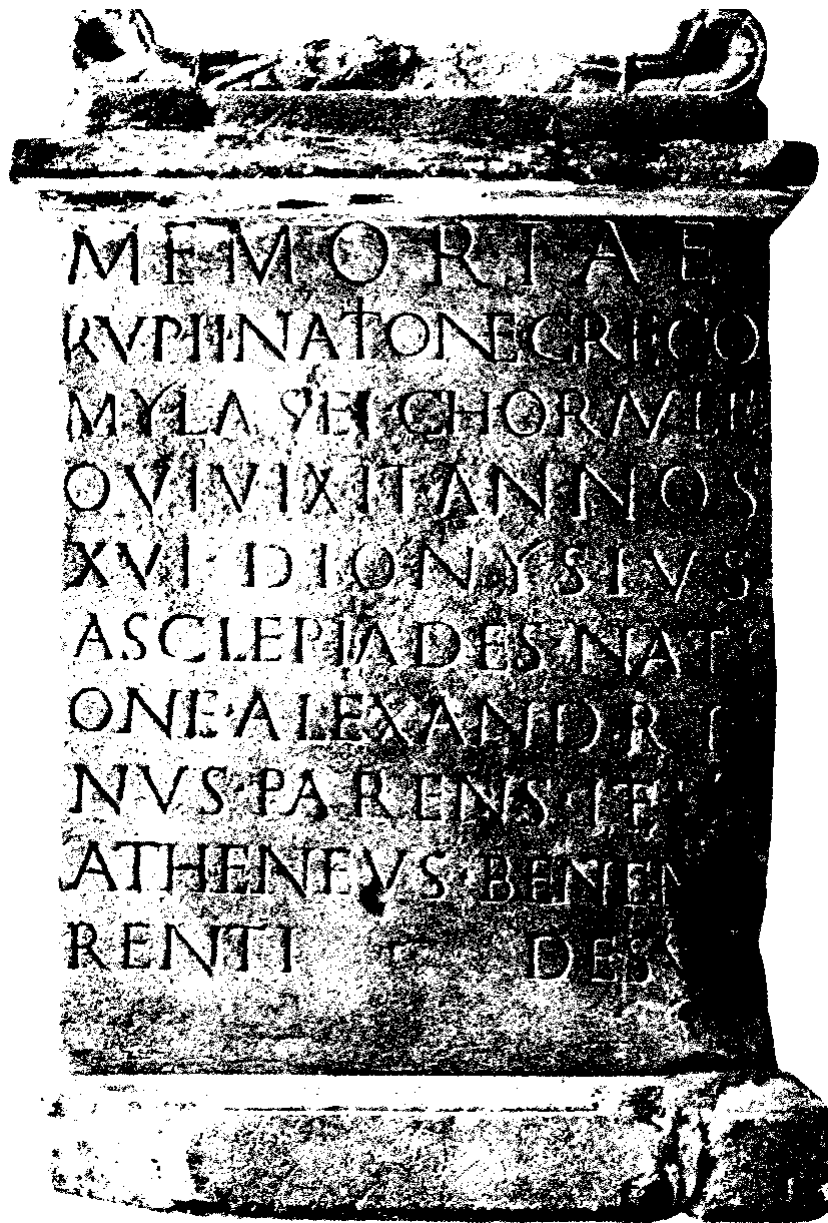 MEMORIAE
RVPHI NATIONE GRECO
MYLASEI CHORAVLE
QVI VIXIT ANNOS
XVI DIONYSIVS
ASCLEPIADES NATI
ONE · ALEXANDRI
NVS · PARENS · ITEM
ATHENEVS · BENEME
RENTI DE SVO